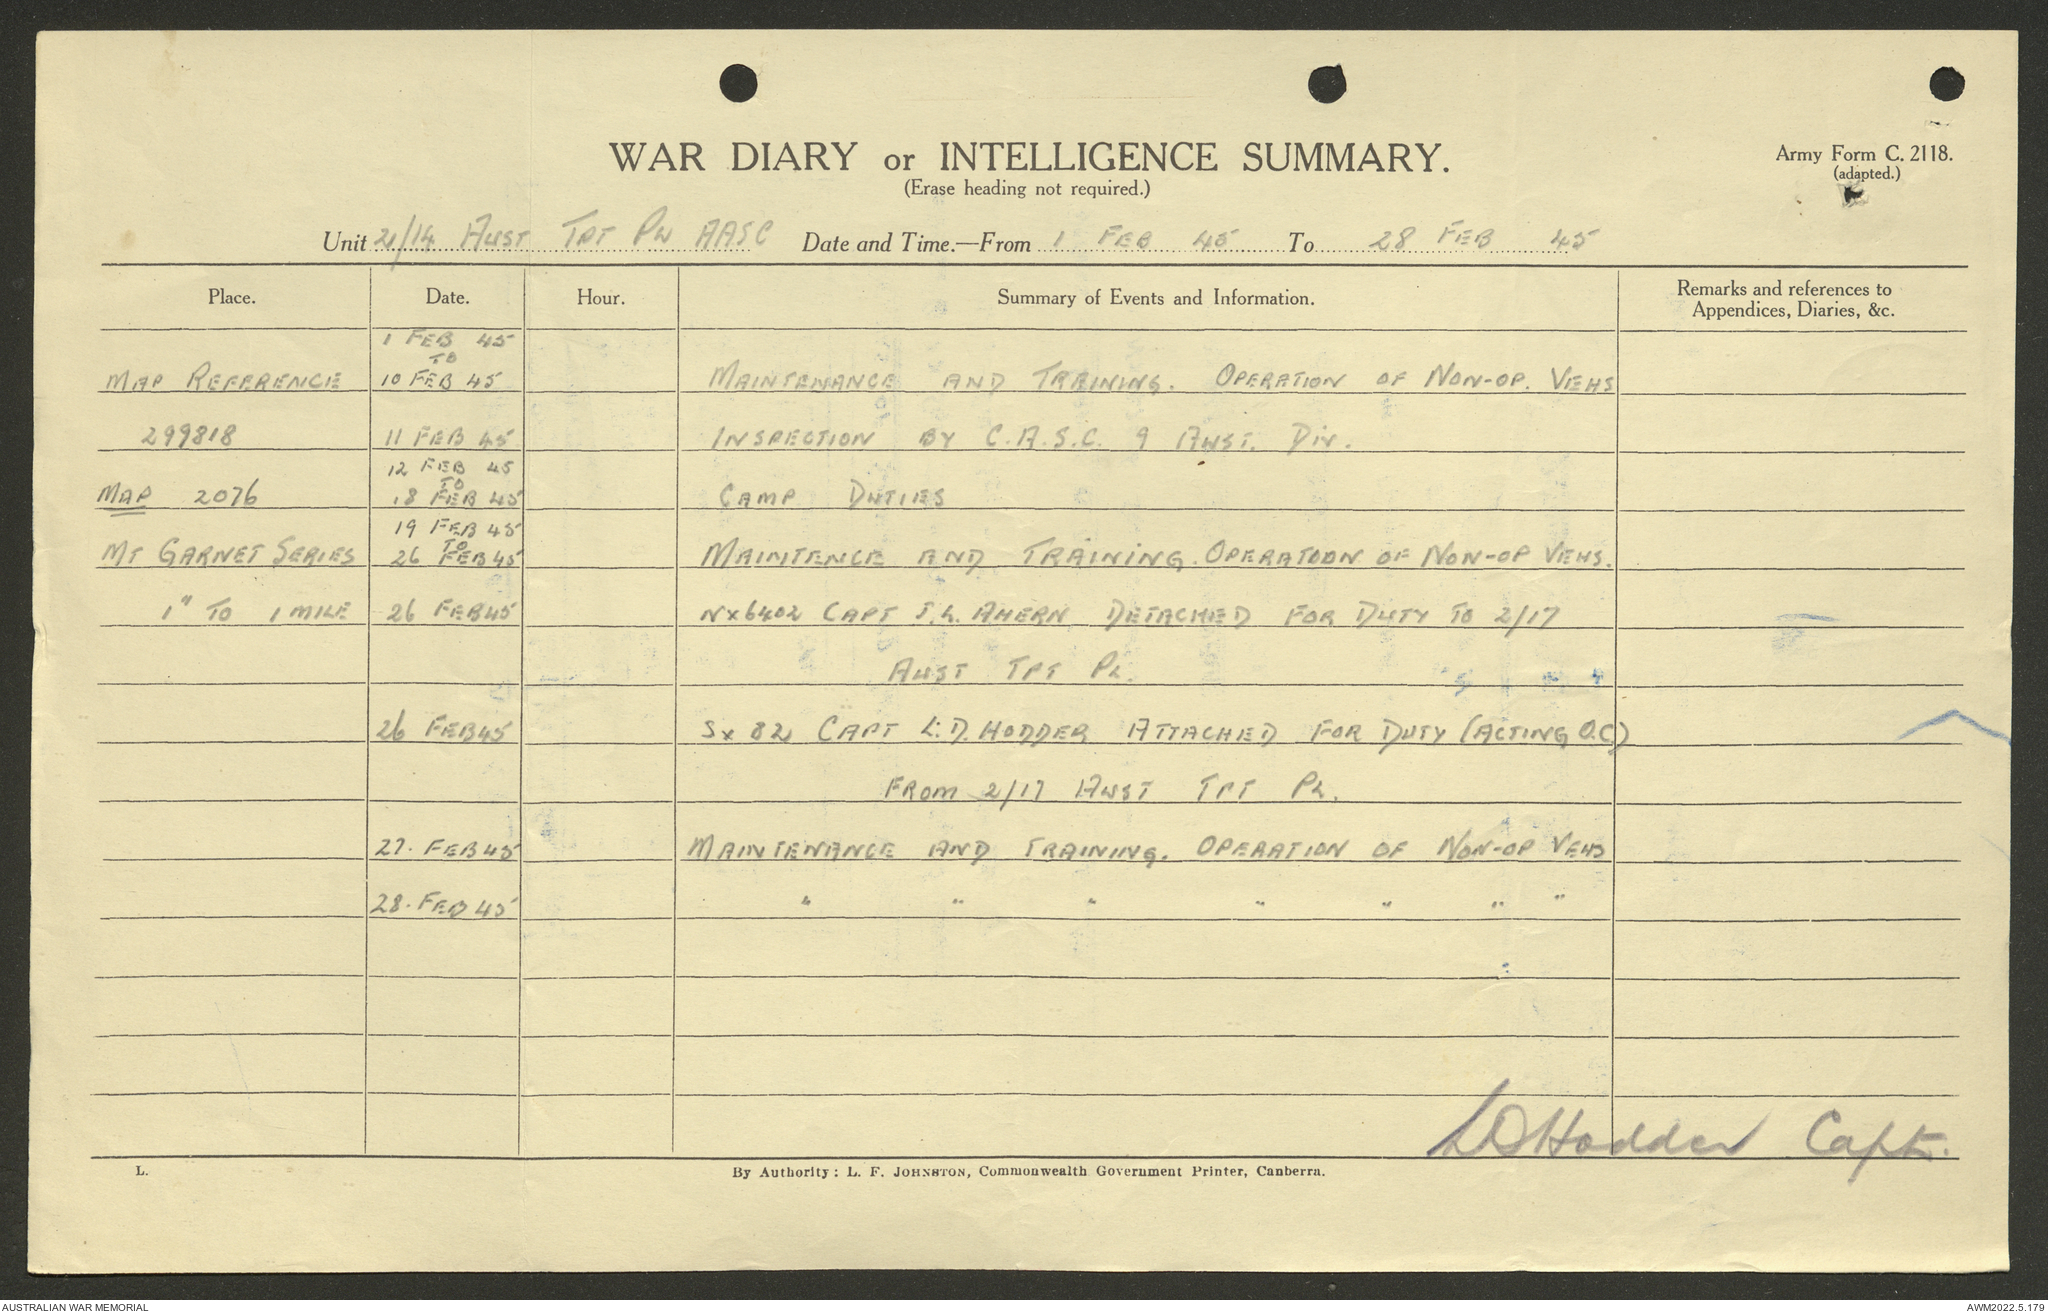 WAR DIARY or INTELLIGENCE SUMMARY.
(Erase heading not required.)
Army Form C. 2118.
(adapted.)
Unit 2/14 AUST TPT PL AASC Date and Time.—From 1 FEB 45 To 28 FEB 45
Place. Date. Hour. Summary of Events and Information. Remarks and references to Appendices, Diaries, &c.
1 FEB 45
TO
MAP REFERENCE 10 FEB 45 MAINTENANCE AND TRAINING. OPERATION OF NON-OP. VEHS
299818 11 FEB 45 INSPECTION BY C.A.S.C. 9 AUST. DIV.
12 FEB 45
TO
MAP 2076 18 FEB 45 CAMP DUTIES
19 FEB 45
TO
MT GARNET SERIES 26 FEB 45 MAINTENCE AND TRAINING. OPERATOON OF NON-OP VEHS.
1" TO 1 MILE 26 FEB 45 NX6402 CAPT J.L. AHERN DETACHED FOR DUTY TO 2/17
AUST TPT PL.
26 FEB 45 SX 82 CAPT L.D. HODDER ATTACHED FOR DUTY (ACTING O.C)
FROM 2/17 AUST TPT PL.
27. FEB 45 MAINTENANCE AND TRAINING. OPERATION OF NON-OP VEHS
28. FEB 45 " " " " " " "
LD Hodder Capt.
L.
By Authority: L. F. JOHNSTON, Commonwealth Government Printer, Canberra.
AUSTRALIAN WAR MEMORIAL
AWM2022.5.179